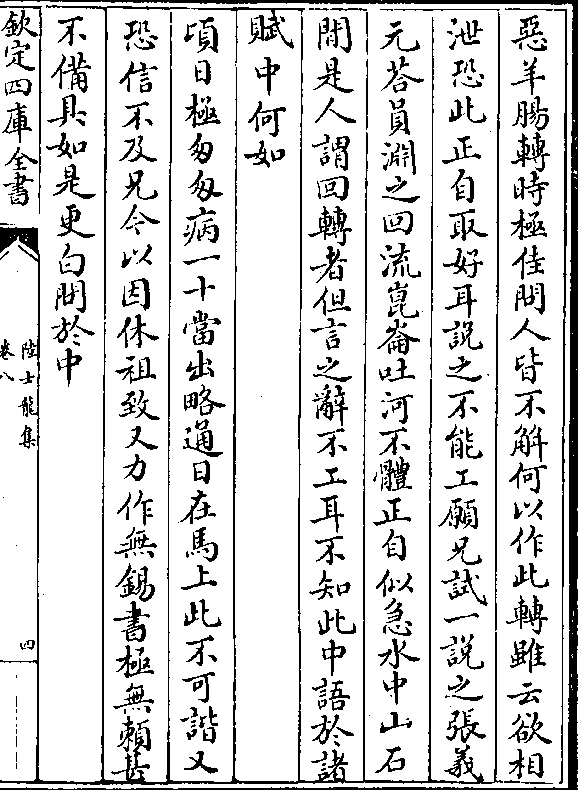 惡羊腸轉時極佳問人皆不解何以作此轉雖云欲相
泄恐此正自取好耳說之不能工願兄試一說之張義
元荅員淵之回流崑崙吐河不體正自似急水中山石
間是人謂回轉者但言之辭不工耳不知此中語於諸
賦中何如
頃日極匆匆病一十當出略通日在馬上此不可諧又
恐信不及兄令以因休祖致又力作無錫書極無賴甚
不備具如是更白問於中
欽定四庫全書
陸士龍集
卷八
四